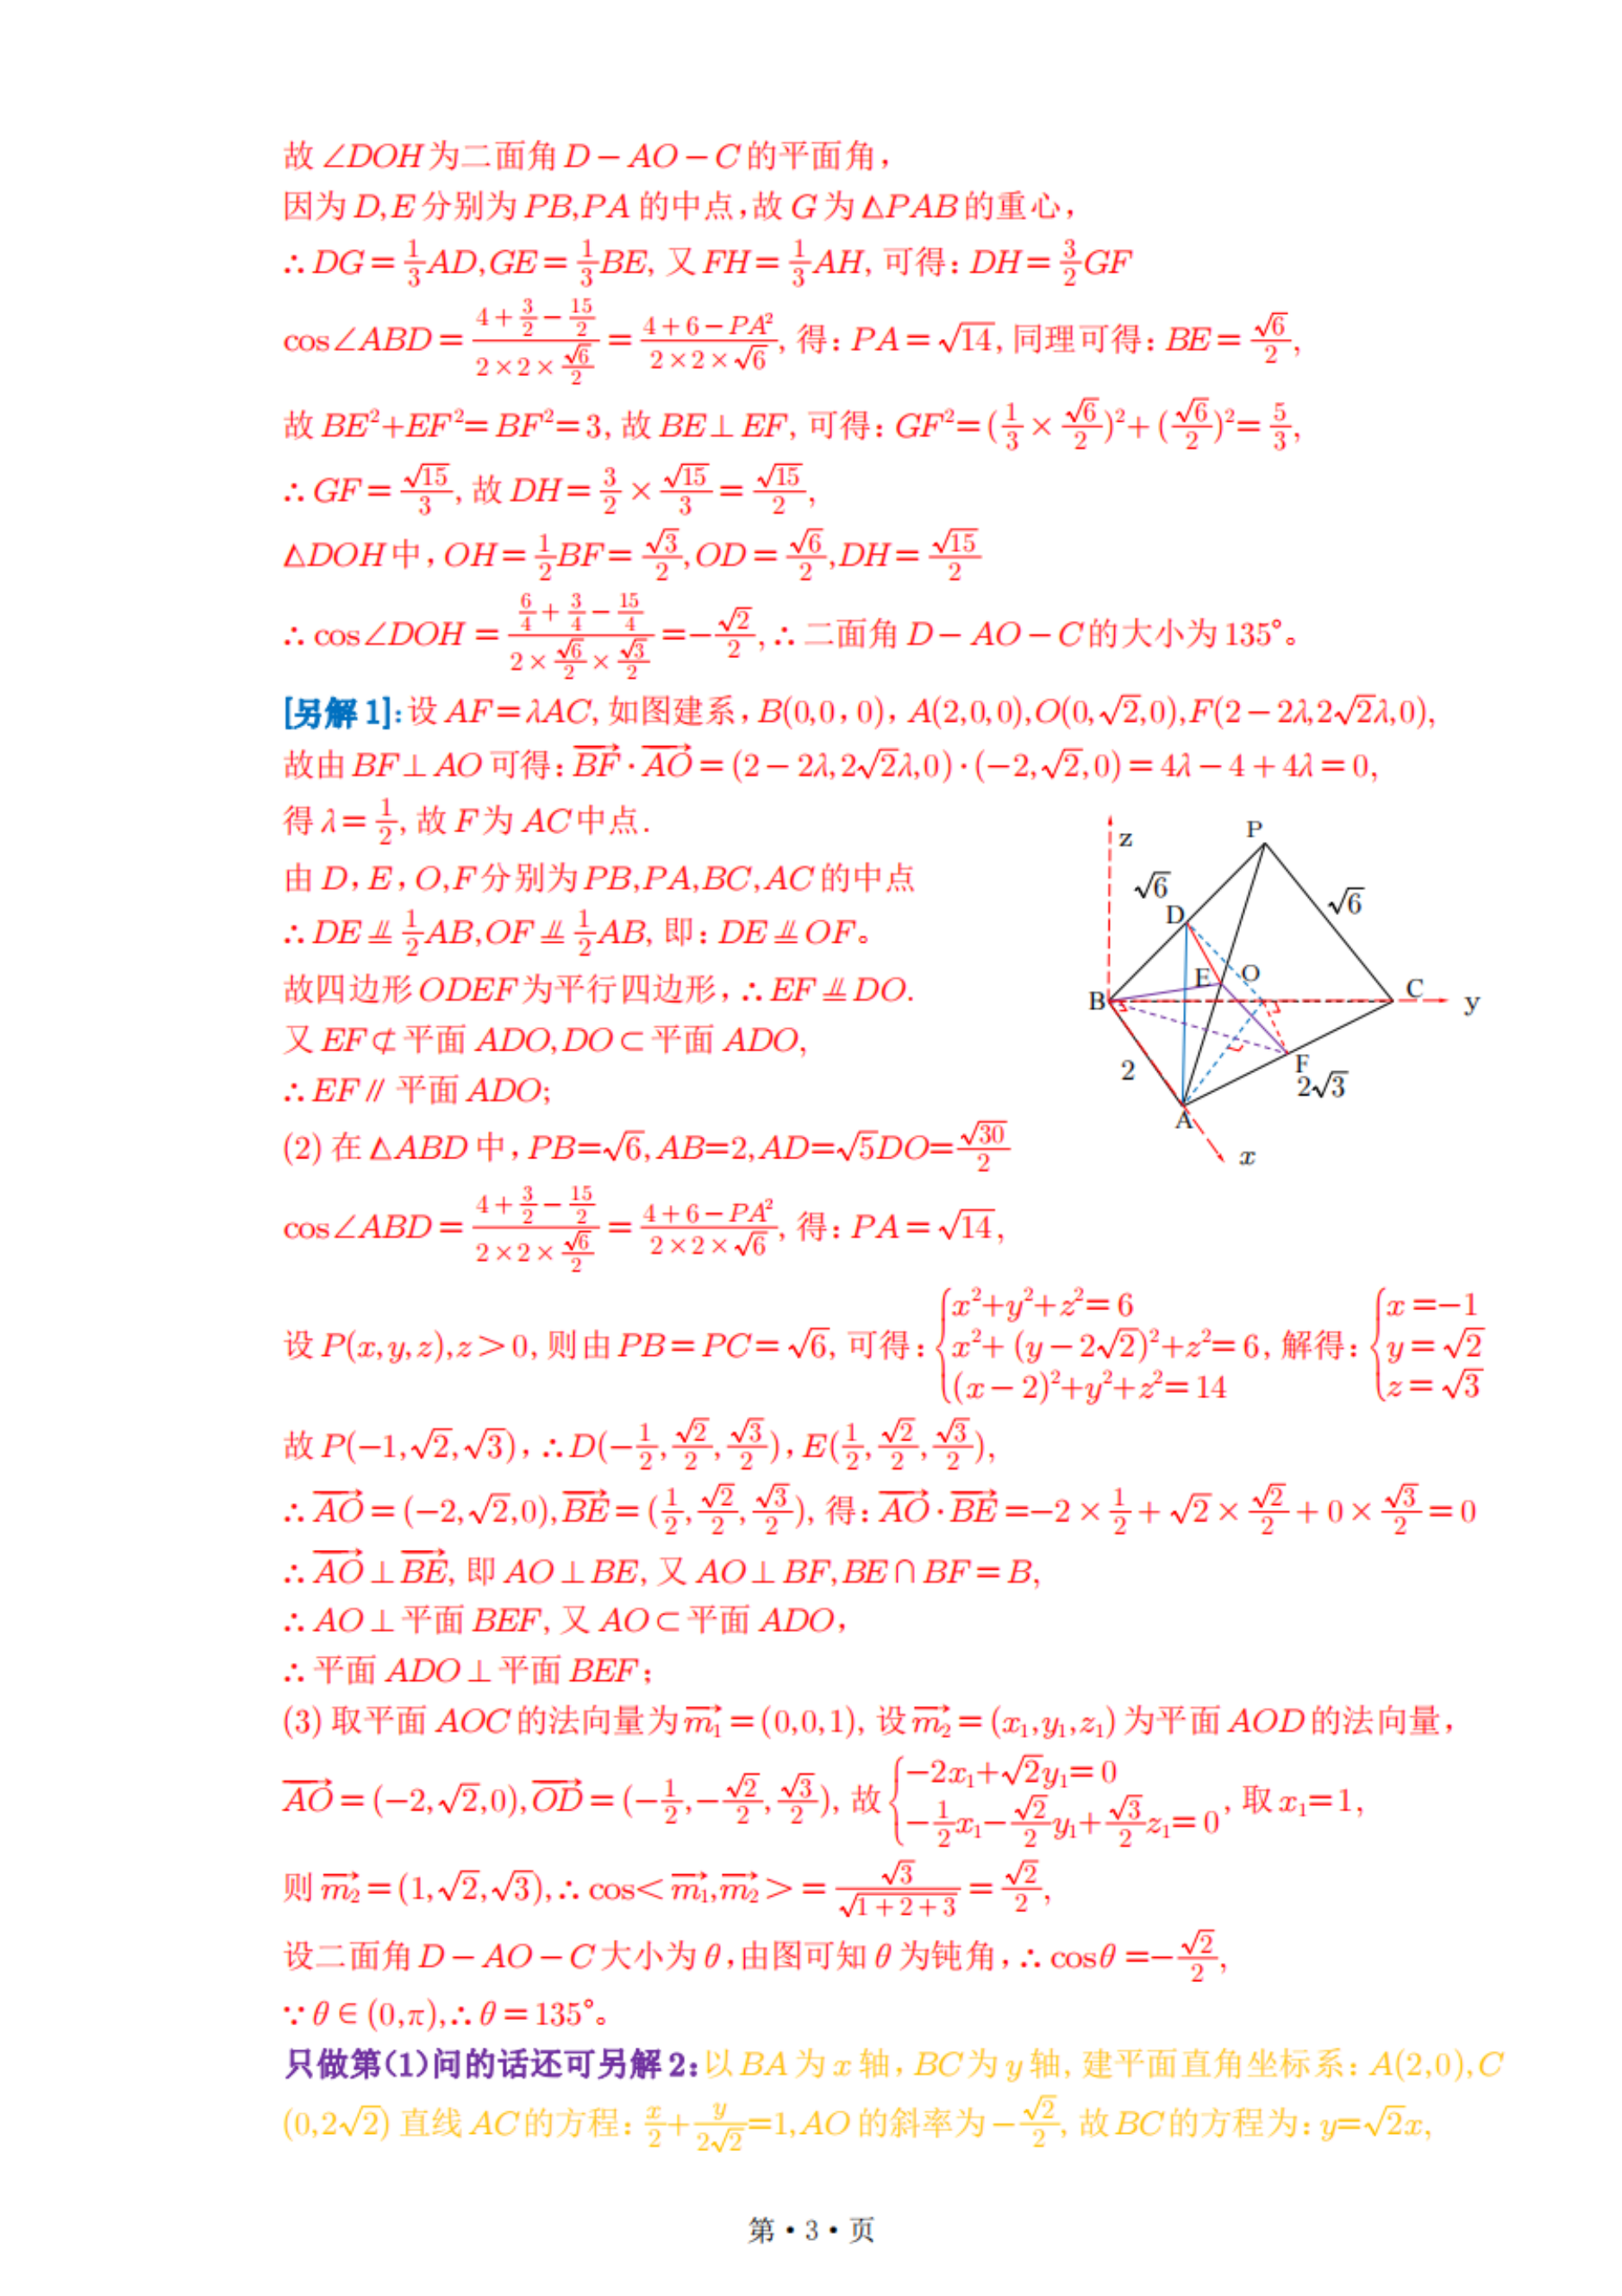 故 ∠DOH 为二面角 D－AO－C 的平面角，
因为 D,E 分别为 PB,PA 的中点，故 G 为 △PAB 的重心，
∴ DG = 1/3 AD, GE = 1/3 BE, 又 FH = 1/3 AH, 可得: DH = 3/2 GF
cos∠ABD = (4 + 3/2 − 15/2)/(2×2×√6/2) = (4+6−PA²)/(2×2×√6), 得: PA = √14, 同理可得: BE = √6/2,
故 BE²+EF²= BF²= 3, 故 BE⊥EF, 可得: GF²= (1/3 × √6/2)²+ (√6/2)²= 5/3,
∴ GF = √15/3, 故 DH = 3/2 × √15/3 = √15/2,
△DOH 中，OH = 1/2 BF = √3/2, OD = √6/2, DH = √15/2
∴ cos∠DOH = (6/4 + 3/4 − 15/4)/(2×√6/2×√3/2) =−√2/2, ∴ 二面角 D－AO－C 的大小为 135°。
[另解 1]: 设 AF = λAC, 如图建系，B(0,0,0)，A(2,0,0),O(0,√2,0),F(2−2λ,2√2λ,0),
故由 BF⊥AO 可得: BF→·AO→ = (2−2λ,2√2λ,0)·(−2,√2,0) = 4λ−4+4λ = 0,
得 λ = 1/2, 故 F 为 AC 中点.
由 D，E，O,F 分别为 PB,PA,BC,AC 的中点
∴ DE ⫫ 1/2 AB, OF ⫫ 1/2 AB, 即: DE ⫫ OF。
故四边形 ODEF 为平行四边形，∴ EF ⫫ DO.
又 EF ⊄ 平面 ADO, DO ⊂ 平面 ADO,
∴ EF // 平面 ADO;
z
P
√6
√6
D
E
O
B
C
y
2
F
2√3
A
x
(2) 在 △ABD 中，PB=√6, AB=2, AD=√5DO=√30/2
cos∠ABD = (4 + 3/2 − 15/2)/(2×2×√6/2) = (4+6−PA²)/(2×2×√6), 得: PA = √14,
设 P(x,y,z), z > 0, 则由 PB = PC = √6, 可得: { x²+y²+z²= 6; x²+ (y−2√2)²+z²= 6; (x−2)²+y²+z²= 14, 解得: { x =−1; y = √2; z = √3
故 P(−1,√2,√3)，∴ D(−1/2,√2/2,√3/2)，E(1/2,√2/2,√3/2),
∴ AO→ = (−2,√2,0), BE→ = (1/2,√2/2,√3/2), 得: AO→·BE→ =−2×1/2+√2×√2/2+0×√3/2 = 0
∴ AO→⊥BE→, 即 AO⊥BE, 又 AO⊥BF, BE∩BF = B,
∴ AO⊥平面 BEF, 又 AO⊂平面 ADO，
∴ 平面 ADO⊥平面 BEF；
(3) 取平面 AOC 的法向量为 m₁→ = (0,0,1), 设 m₂→ = (x₁,y₁,z₁) 为平面 AOD 的法向量，
AO→ = (−2,√2,0), OD→ = (−1/2,−√2/2,√3/2), 故 { −2x₁+√2y₁= 0; −1/2x₁−√2/2y₁+√3/2z₁= 0, 取 x₁= 1,
则 m₂→ = (1,√2,√3), ∴ cos< m₁→,m₂→ > = √3/√(1+2+3) = √2/2,
设二面角 D－AO－C 大小为 θ，由图可知 θ 为钝角，∴ cosθ =−√2/2,
∵ θ ∈ (0,π), ∴ θ = 135°。
只做第(1)问的话还可另解 2: 以 BA 为 x 轴，BC 为 y 轴, 建平面直角坐标系: A(2,0), C
(0,2√2) 直线 AC 的方程: x/2+y/(2√2)=1, AO 的斜率为 −√2/2, 故 BC 的方程为: y=√2x,
第·3·页